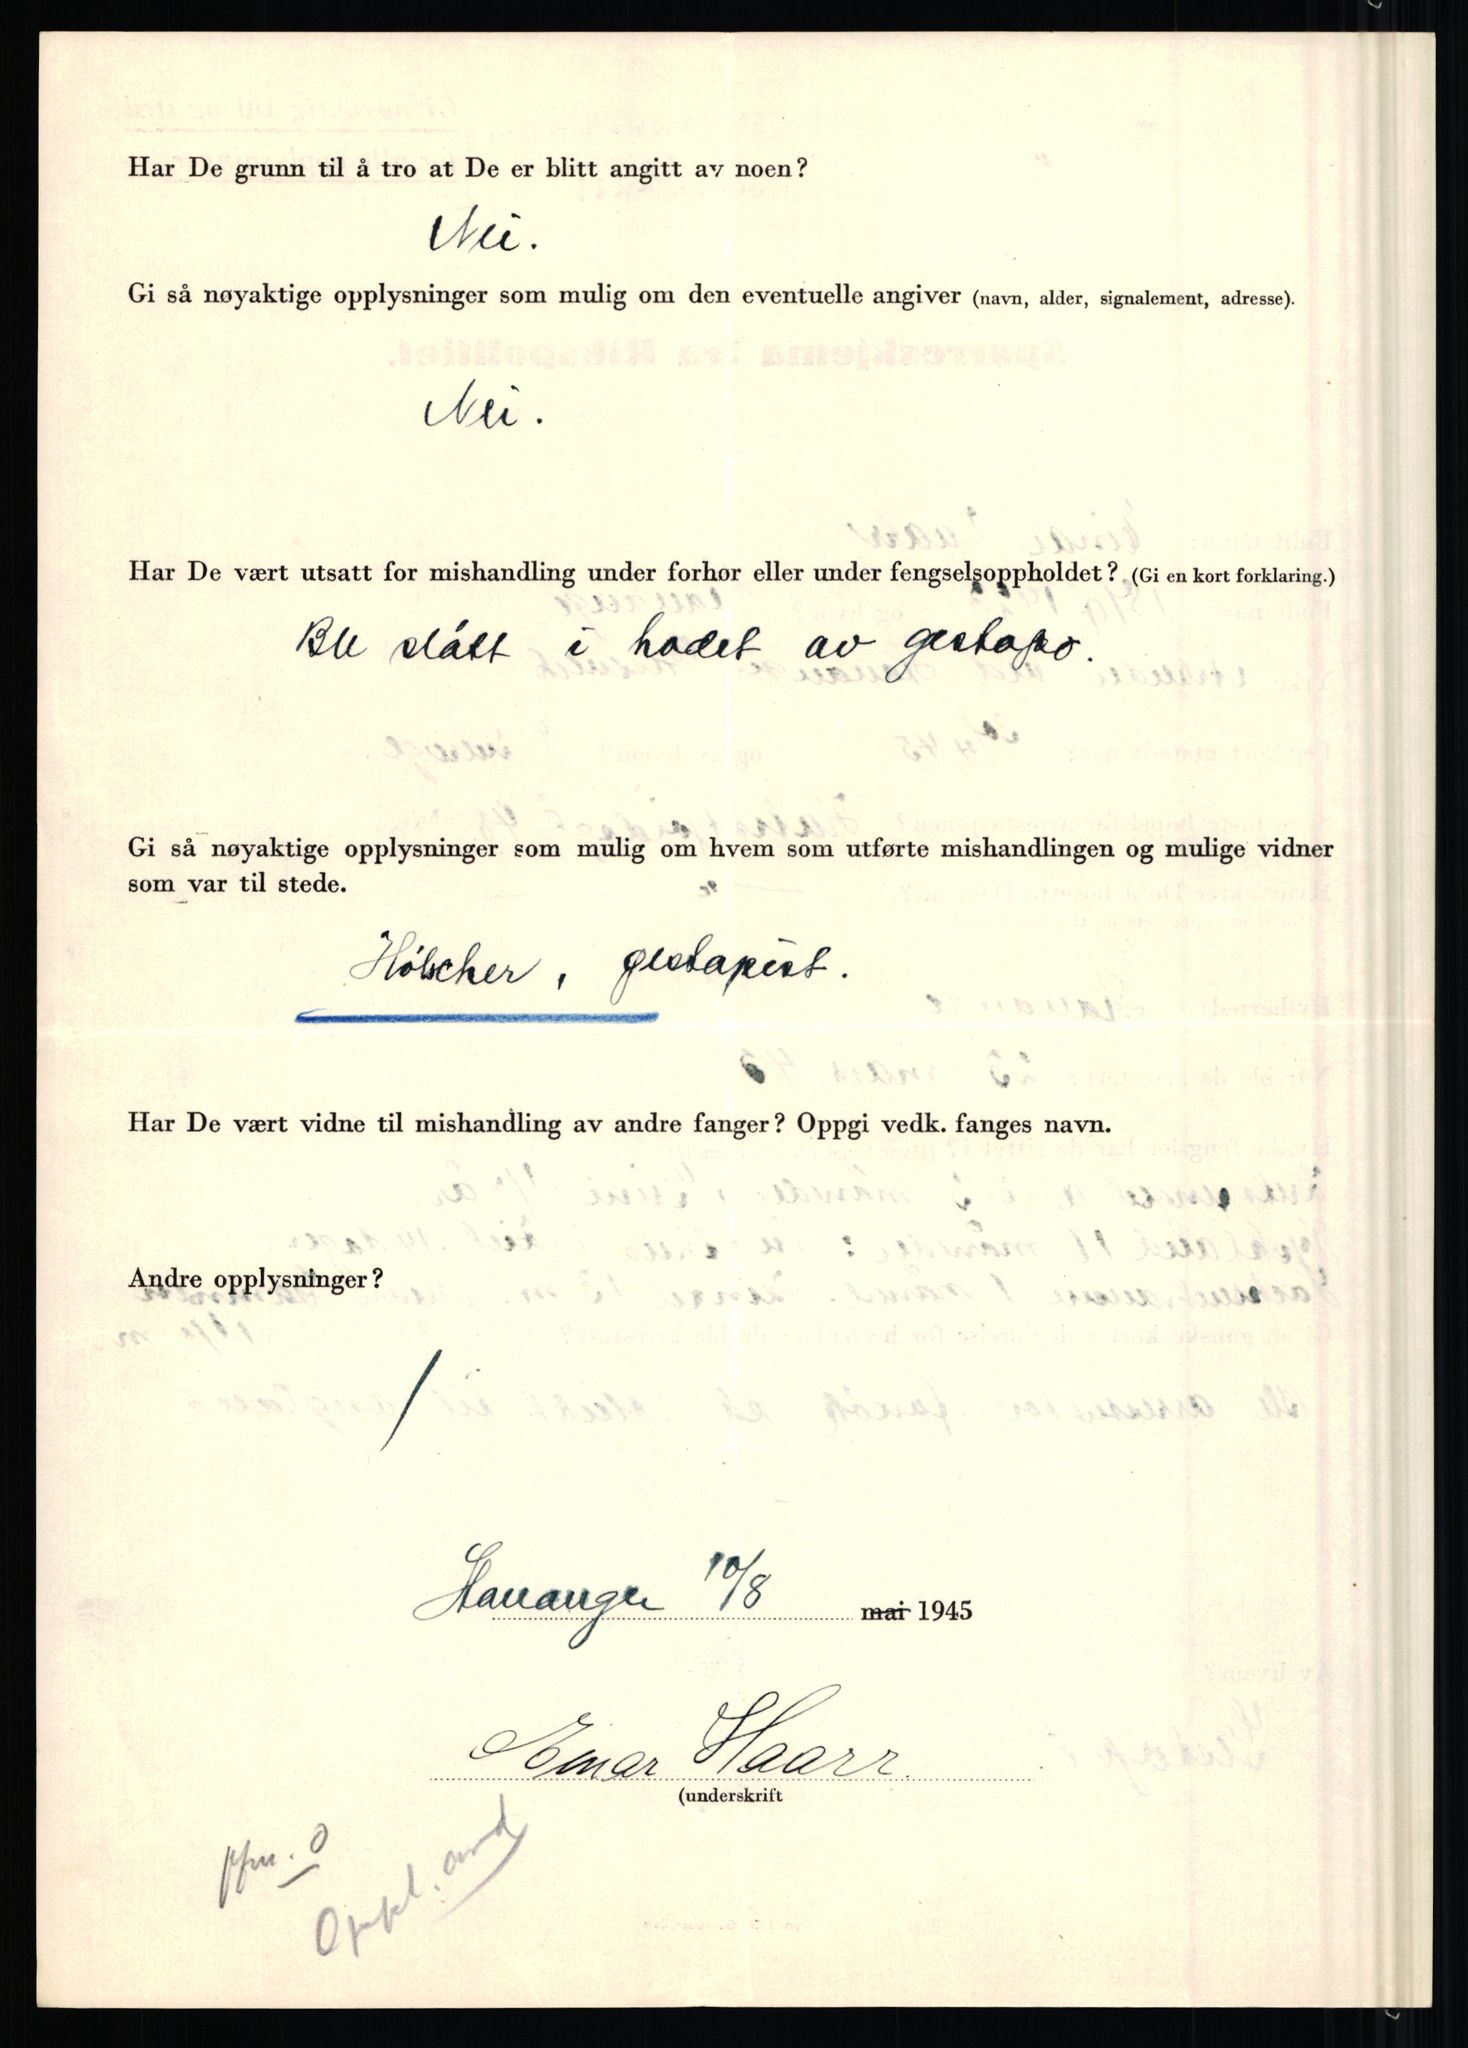 Har De grunn til å tro at De er blitt angitt av noen?
Nei.
Gi så nøyaktige opplysninger som mulig om den eventuelle angiver (navn, alder, signalement, adresse).
Nei.
Har De vært utsatt for mishandling under forhør eller under fengselsoppholdet? (Gi en kort forklaring.)
Ble slått i hodet av gestapo.
Gi så nøyaktige opplysninger som mulig om hvem som utførte mishandlingen og mulige vidner
som var til stede.
Hölscher, gestapist.
Har De vært vidne til mishandling av andre fanger? Oppgi vedk. fanges navn.
Andre opplysninger?
/
Stavanger 10/8 mai 1945
Einar Haarr.
(underskrift